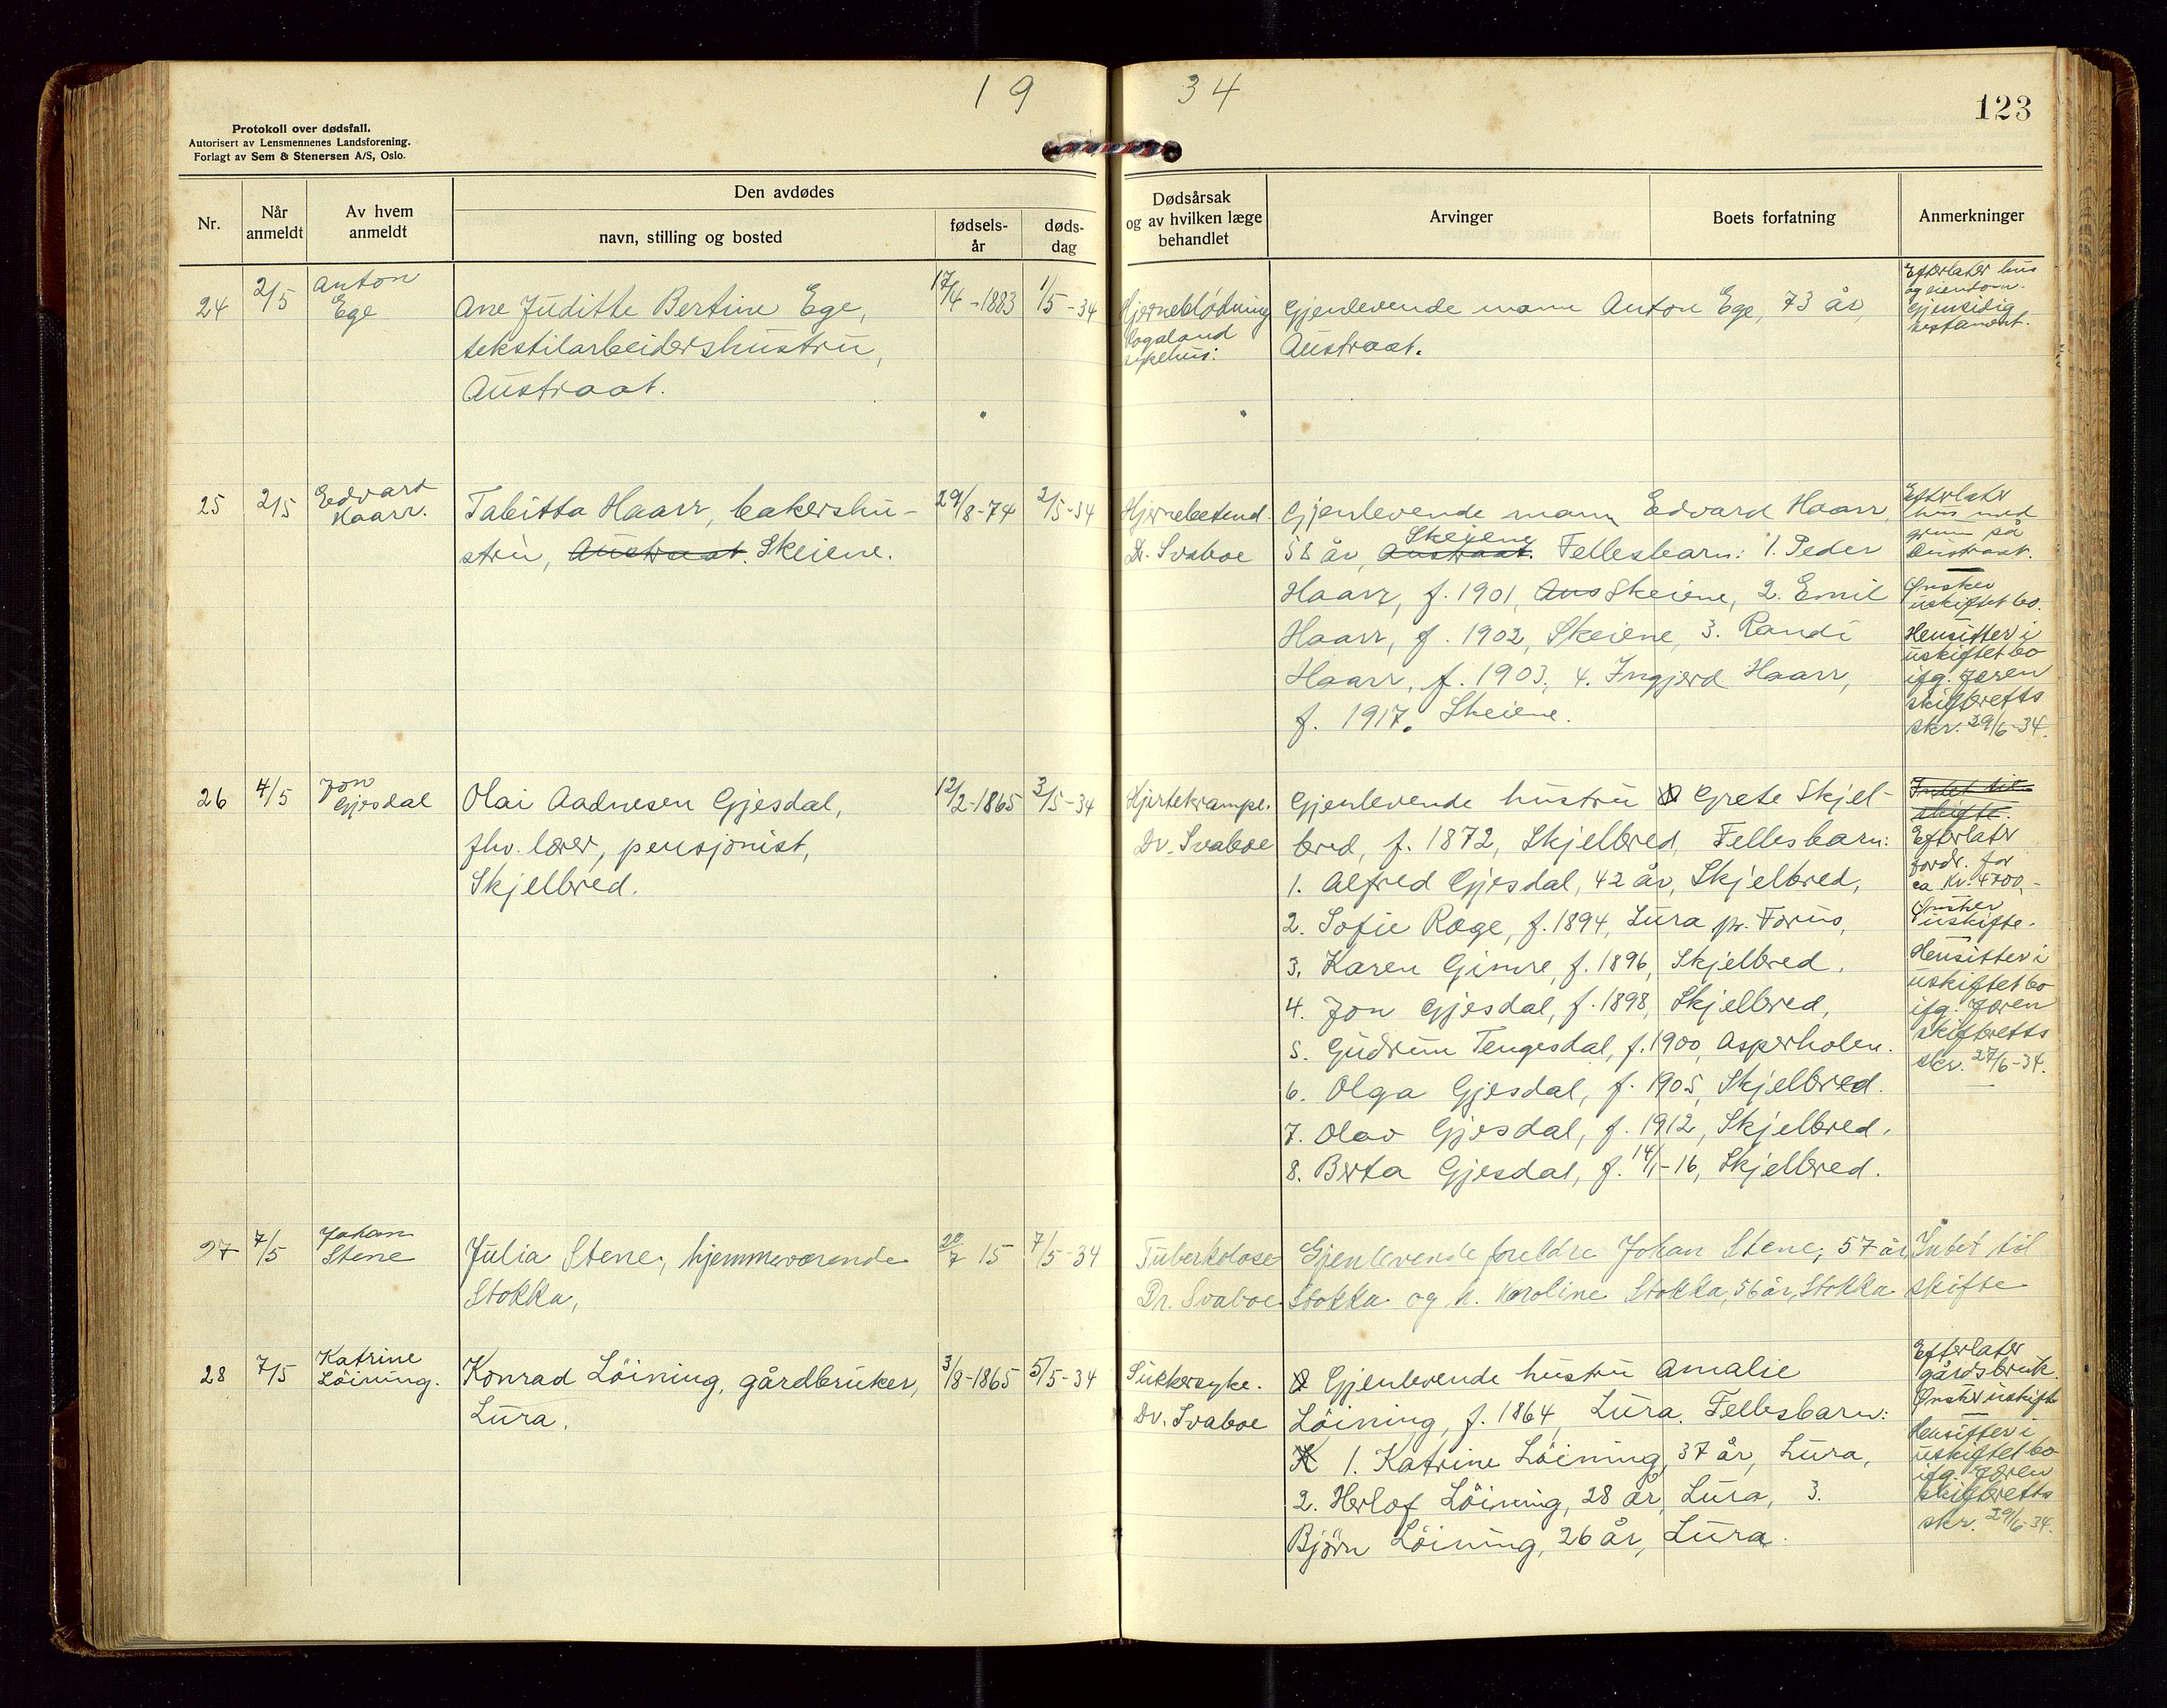 19 34
123
Protokoll over dødsfall.
Autorisert av Lensmennenes Landsforening.
Forlagt av Sem & Stenersen A/S, Oslo.
Nr.
Når anmeldt
Av hvem anmeldt
Den avdødes
navn, stilling og bosted
fødsels-år
døds-dag
Dødsårsak og av hvilken læge behandlet
Arvinger
Boets forfatning
Anmerkninger
24
2/5
Anton
Ege
Ane Juditte Bertine Ege,
tekstilarbeidershustru,
Austraat.
17/4-1883
1/5-34
Hjerneblødning
Rogaland
sykehus.
Gjenlevende mann Anton Ege, 73 år,
Austraat.
Efterlater hus
og eiendom.
Gjensidig
testament.
25
2/5
Edvard
Haarr.
Tabitta Haarr, bakershu-
stru, Austraat. Skeiene.
29/8-74
2/5-34
Hjernebetend.
Dr. Svaboe
Gjenlevende mann Edvard Haarr,
Skeiene
58 år, Austraat. Fellesbarn: 1. Peder
Haarr, f. 1901, Aus Skeiene, 2. Emil
Haarr, f. 1902, Skeiene, 3. Randi
Haarr, f. 1903, 4. Ingjerd Haarr,
f. 1917. Skeiene.
Efterlater
hus med
grunn på
Austraat.
Ønsker
uskiftet bo.
Hensitter i
uskiftet bo
ifg. Jæren
skifteretts
skr. 29/6-34.
26
4/5
Jon
Gjesdal
Olai Aadnesen Gjesdal,
fhv. lærer, pensjonist,
Skjelbred.
12/2-1865
3/5-34
Hjertekrampe.
Dr. Svaboe
Gjenlevende hustru Grete Skjel-
bred, f. 1872, Skjelbred, Fellesbarn:
1. Alfred Gjesdal, 42 år, Skjelbred,
2. Sofie Røge, f. 1894, Lura pr. Forus,
3. Karen Gimre, f. 1896, Skjelbred.
4. Jon Gjesdal, f. 1898, Skjelbred,
5. Gudrun Tengesdal, f. 1900, Asperholen.
6. Olga Gjesdal, f. 1905, Skjelbred.
7. Olav Gjesdal, f. 1912, Skjelbred.
8. Berta Gjesdal, f. 14/1-16, Skjelbred.
Intet til
skifte.
Efterlater
fordr. for
ca. kr. 4700,-
Ønsker
uskifte.
Hensitter i
uskiftet bo
ifg. Jæren
skifteretts
skr. 27/6-34.
27
7/5
Johan
Stene
Julia Stene, hjemmeværende
Stokka,
20/7 15
7/5-34
Tuberkolose
Dr. Svaboe
Gjenlevende foreldre Johan Stene, 57 år
Stokka og h. Karoline Stokka, 56 år, Stokka
Intet til
skifte
28
7/5
Katrine
Löining.
Konrad Löining, gårdbruker,
Lura.
3/8-1865
5/5-34
Sukkersyke.
Dr. Svaboe
Gjenlevende hustru Amalie
Löining, f. 1864, Lura. Fellesbarn:
K 1. Katrine Löining, 37 år, Lura,
2. Herlof Löining, 28 år, Lura, 3.
Björn Löining, 26 år, Lura.
Efterlater
gårdsbruk.
Ønsker uskifte
Hensitter i
uskiftet bo
ifg. Jæren
skifteretts
skr. 29/6-34.